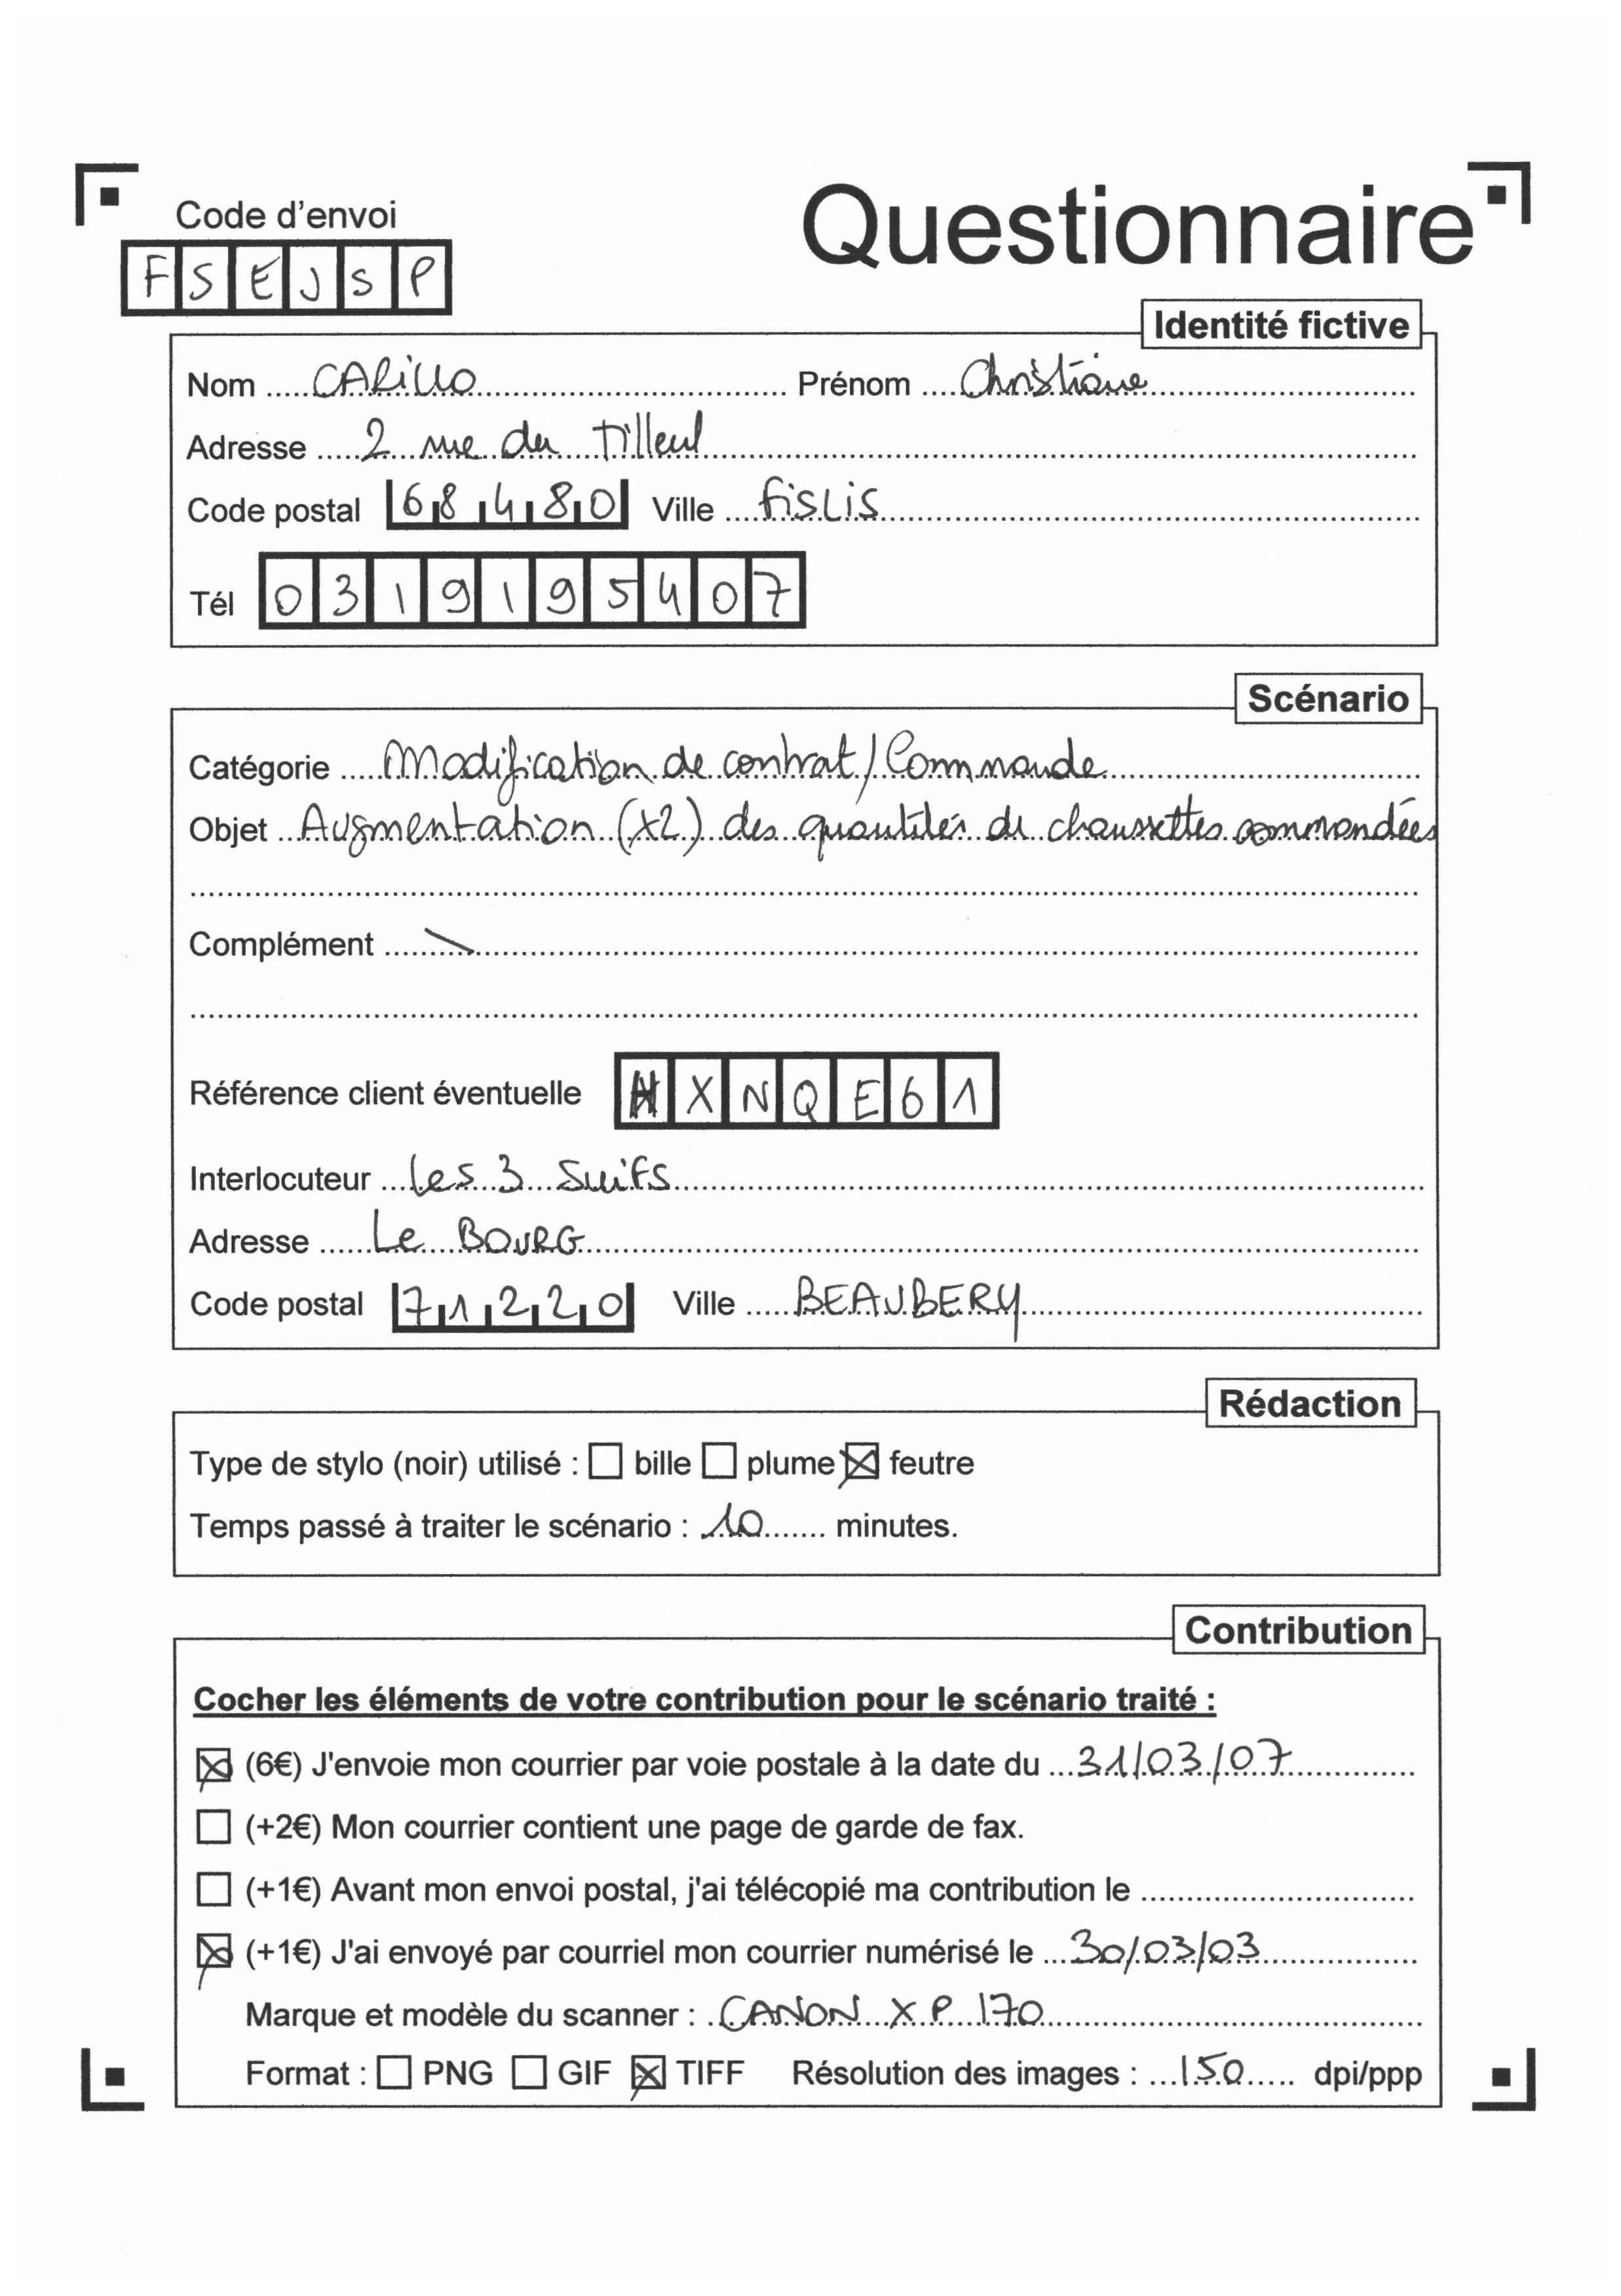 Code d'envoi
Questionnaire
FSEJSP
Identité fictive
Nom CARiLLO Prénom Christiane
Adresse 2 rue du Tilleul
Code postal 68480 Ville fisLis
Tél 0319195407
Scénario
Catégorie Modification de contrat/Commande
Objet Augmentation (x2) des quantités de chaussettes commandées
Complément \
Référence client éventuelle XNQE61
Interlocuteur Les 3 Suifs
Adresse Le BOURG
Code postal 71220 Ville BEAUBERY
Rédaction
Type de stylo (noir) utilisé : ☐ bille ☐ plume ☒ feutre
Temps passé à traiter le scénario : 10 minutes.
Contribution
Cocher les éléments de votre contribution pour le scénario traité :
☒ (6€) J'envoie mon courrier par voie postale à la date du 31/03/07
☐ (+2€) Mon courrier contient une page de garde de fax.
☐ (+1€) Avant mon envoi postal, j'ai télécopié ma contribution le
☒ (+1€) J'ai envoyé par courriel mon courrier numérisé le 30/03/03
Marque et modèle du scanner : CANON XP 170
Format : ☐ PNG ☐ GIF ☒ TIFF Résolution des images : 150 dpi/ppp